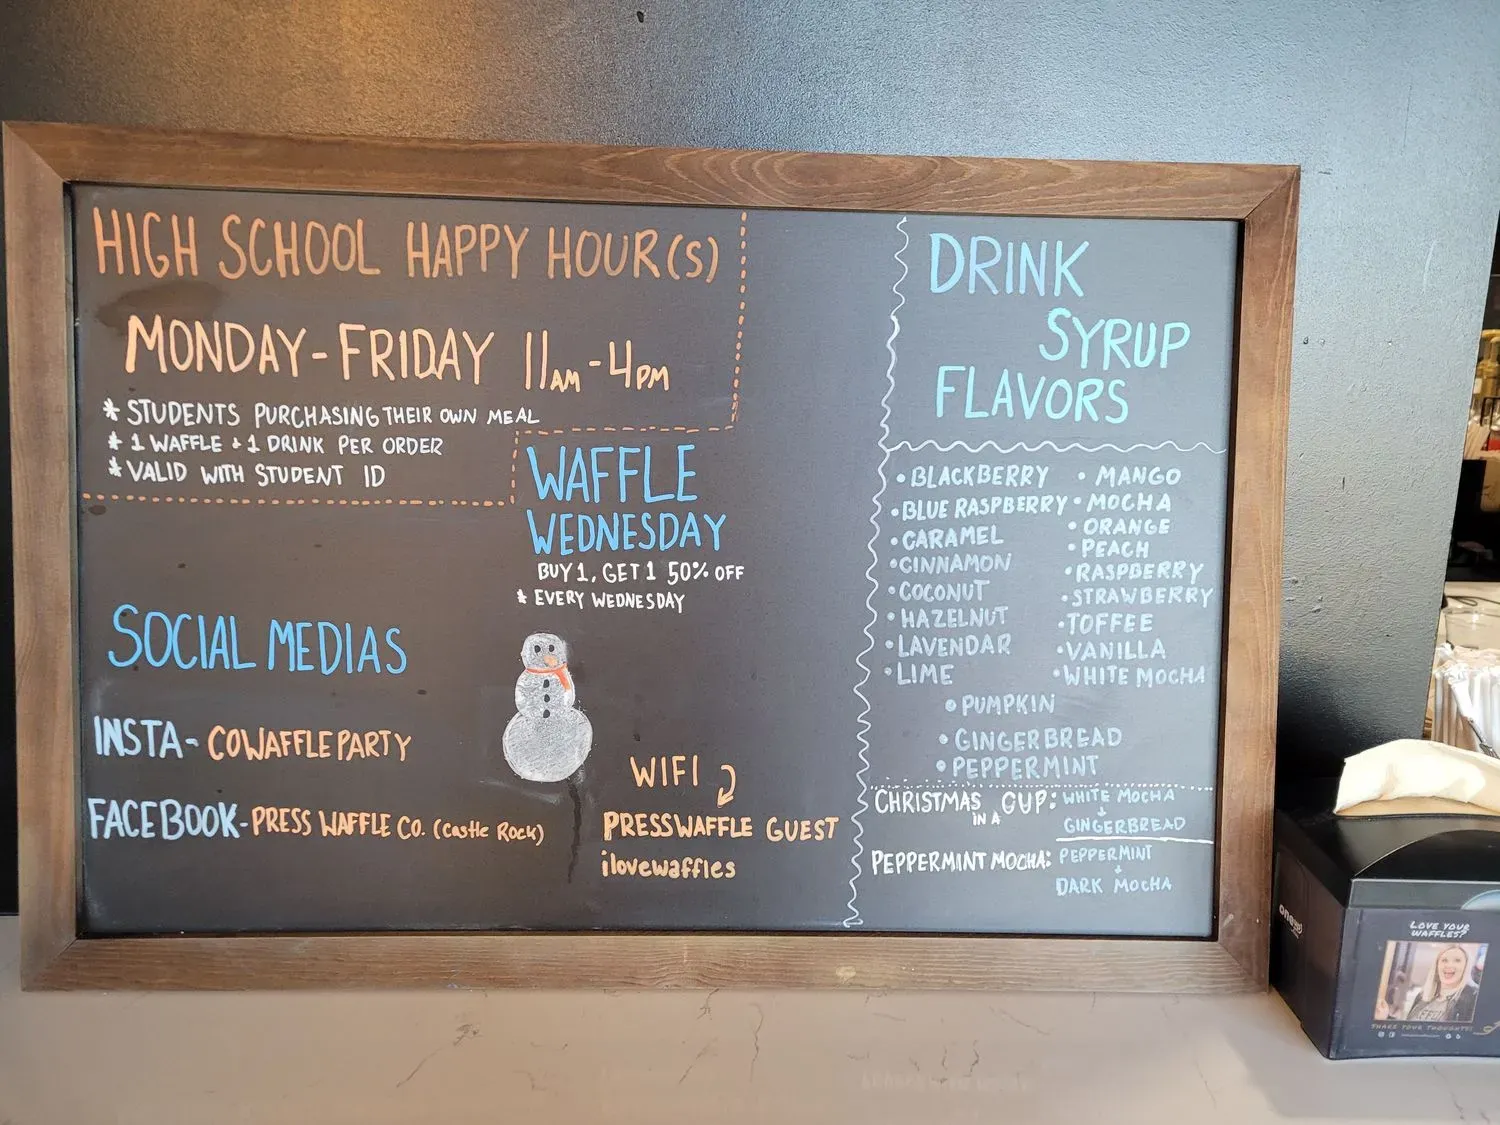 HIGH SCHOOL HAPPY HOUR(S)
MONDAY-FRIDAY 11AM-4PM
* STUDENTS PURCHASING THEIR OWN MEAL
* 1 WAFFLE + 1 DRINK PER ORDER
* VALID WITH STUDENT ID
WAFFLE
WEDNESDAY
BUY 1, GET 1 50% OFF
* EVERY WEDNESDAY
SOCIAL MEDIAS
INSTA- COWAFFLEPARTY
FACEBOOK- PRESS WAFFLE CO. (Castle Rock)
WIFI
PRESSWAFFLE GUEST
ilovewaffles
DRINK
SYRUP
FLAVORS
• BLACKBERRY
• BLUE RASPBERRY
• CARAMEL
• CINNAMON
• COCONUT
• HAZELNUT
• LAVENDAR
• LIME
• MANGO
• MOCHA
• ORANGE
• PEACH
• RASPBERRY
• STRAWBERRY
• TOFFEE
• VANILLA
• WHITE MOCHA
• PUMPKIN
• GINGERBREAD
• PEPPERMINT
CHRISTMAS IN A CUP: WHITE MOCHA
+
GINGERBREAD
PEPPERMINT MOCHA: PEPPERMINT
+
DARK MOCHA
LOVE YOUR
WAFFLES?
SHARE YOUR THOUGHTS!